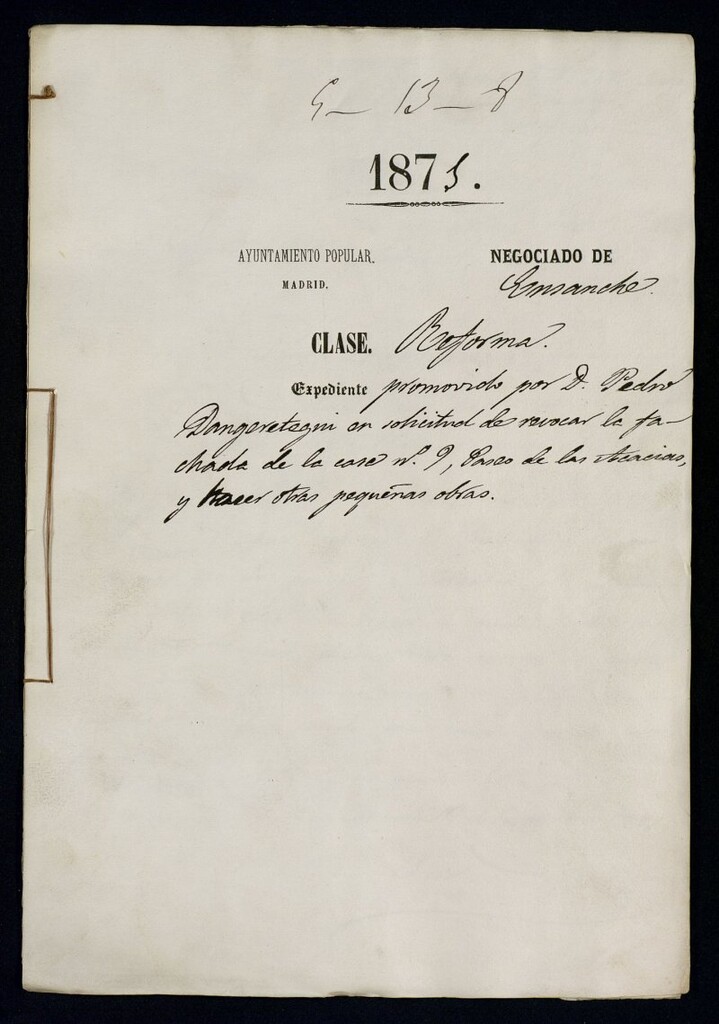 5 — 13 — 8
1875.
AYUNTAMIENTO POPULAR.
MADRID.
NEGOCIADO DE
Ensanche.
CLASE. Reforma.
Expediente promovido por D. Pedro
Dangeretegui en solicitud de revocar la fa-
chada de la casa nº. 9, Paseo de las Acacias,
y hacer otras pequeñas obras.